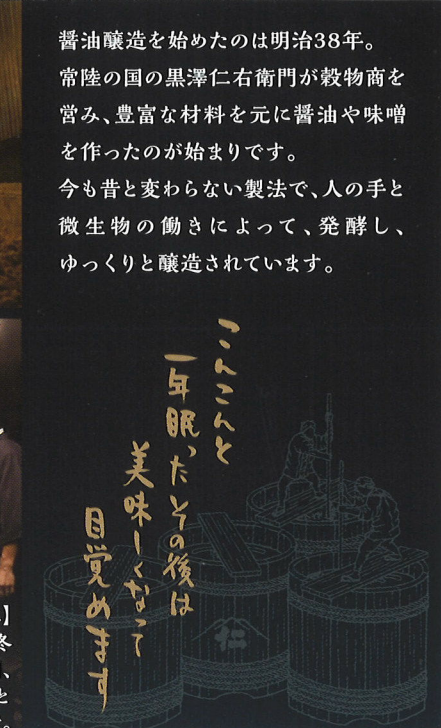 醤油醸造を始めたのは明治38年。
常陸の国の黒澤仁右衛門が穀物商を
営み、豊富な材料を元に醤油や味噌
を作ったのが始まりです。
今も昔と変わらない製法で、人の手と
微生物の働きによって、発酵し、
ゆっくりと醸造されています。
こんこんと
一年眠ったその後は
美味しくなって
目覚めます
仁